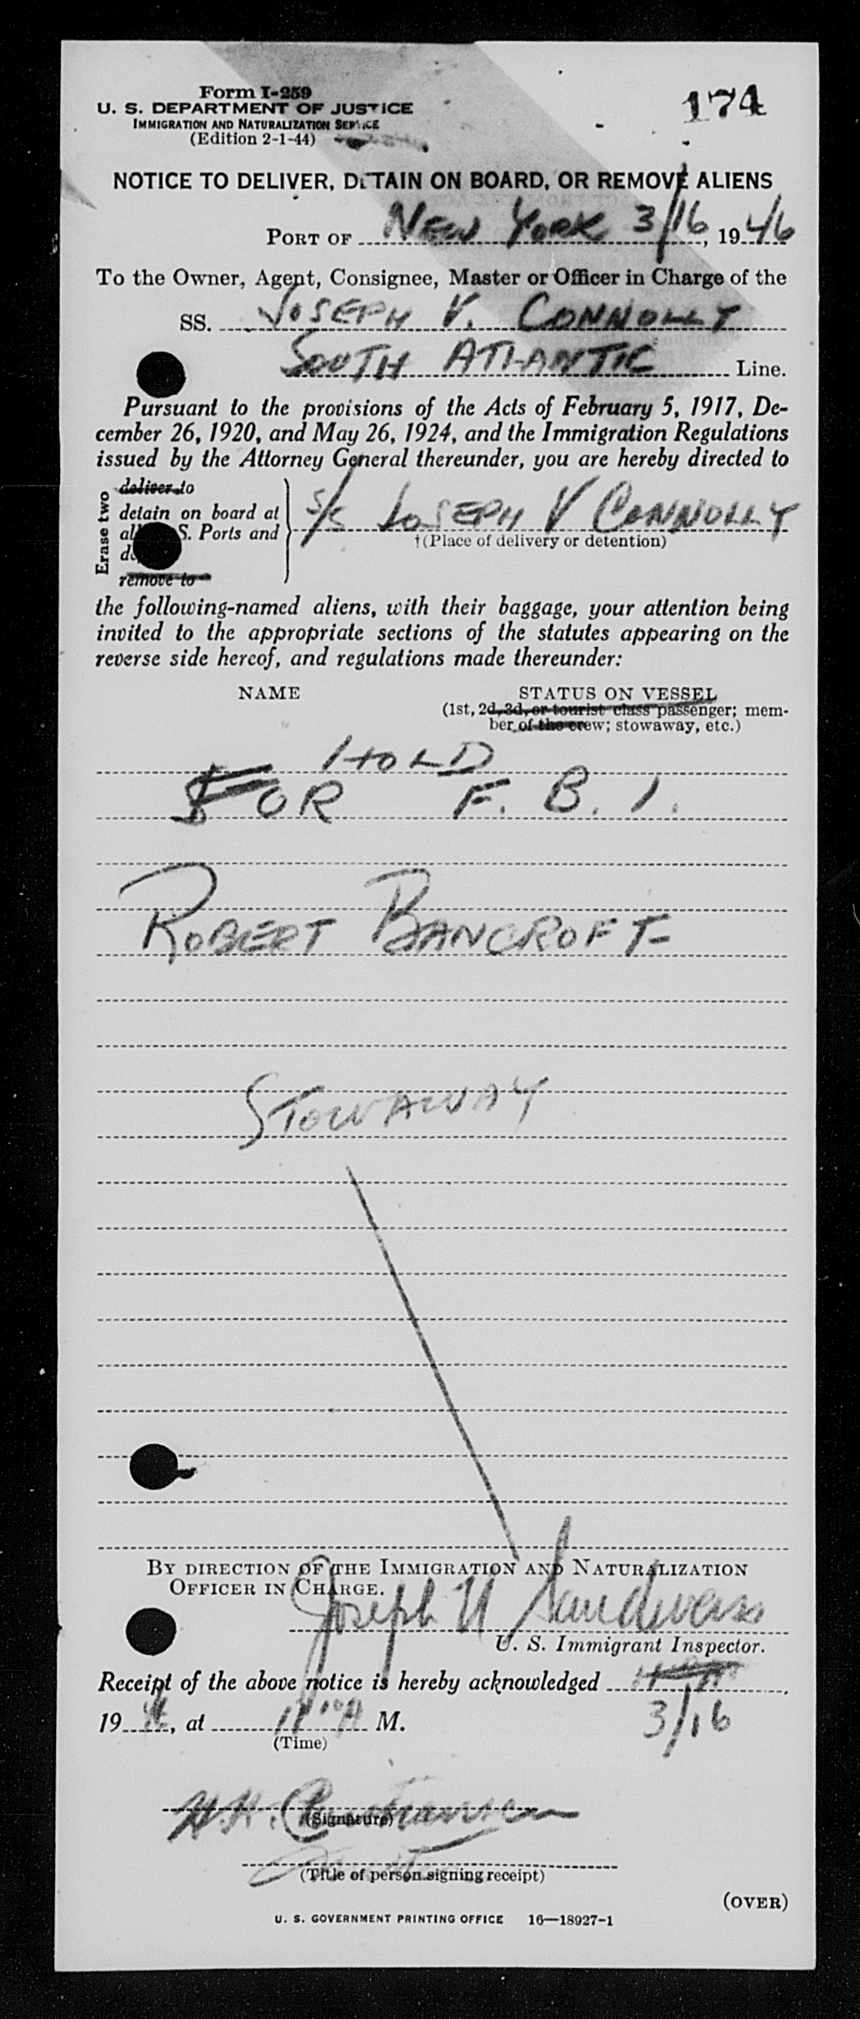 Form I-259
174
U. S. DEPARTMENT OF JUSTICE
IMMIGRATION AND NATURALIZATION SERVICE
(Edition 2-1-44)
NOTICE TO DELIVER, DETAIN ON BOARD, OR REMOVE ALIENS
PORT OF NEW YORK 3/16, 1946
To the Owner, Agent, Consignee, Master or Officer in Charge of the
SS. JOSEPH V. CONNOLLY
SOUTH ATLANTIC Line.
Pursuant to the provisions of the Acts of February 5, 1917, De-
cember 26, 1920, and May 26, 1924, and the Immigration Regulations
issued by the Attorney General thereunder, you are hereby directed to
Erase two
deliver to
detain on board at
all S. Ports and
remove to
S/S JOSEPH V CONNOLLY
†(Place of delivery or detention)
the following-named aliens, with their baggage, your attention being
invited to the appropriate sections of the statutes appearing on the
reverse side hereof, and regulations made thereunder:
NAME STATUS ON VESSEL
(1st, 2d, 3d, or tourist class passenger; mem-
ber of the crew; stowaway, etc.)
HOLD
FOR F. B. I.
ROBERT BANCROFT-
STOWAWAY
BY DIRECTION OF THE IMMIGRATION AND NATURALIZATION
OFFICER IN CHARGE.
Joseph
U. S. Immigrant Inspector.
Receipt of the above notice is hereby acknowledged
19 46, at 11 A M. 3/16
(Time)
H.H. Christiansen
(Signature)
(Title of person signing receipt)
(OVER)
U. S. GOVERNMENT PRINTING OFFICE 16—18927-1